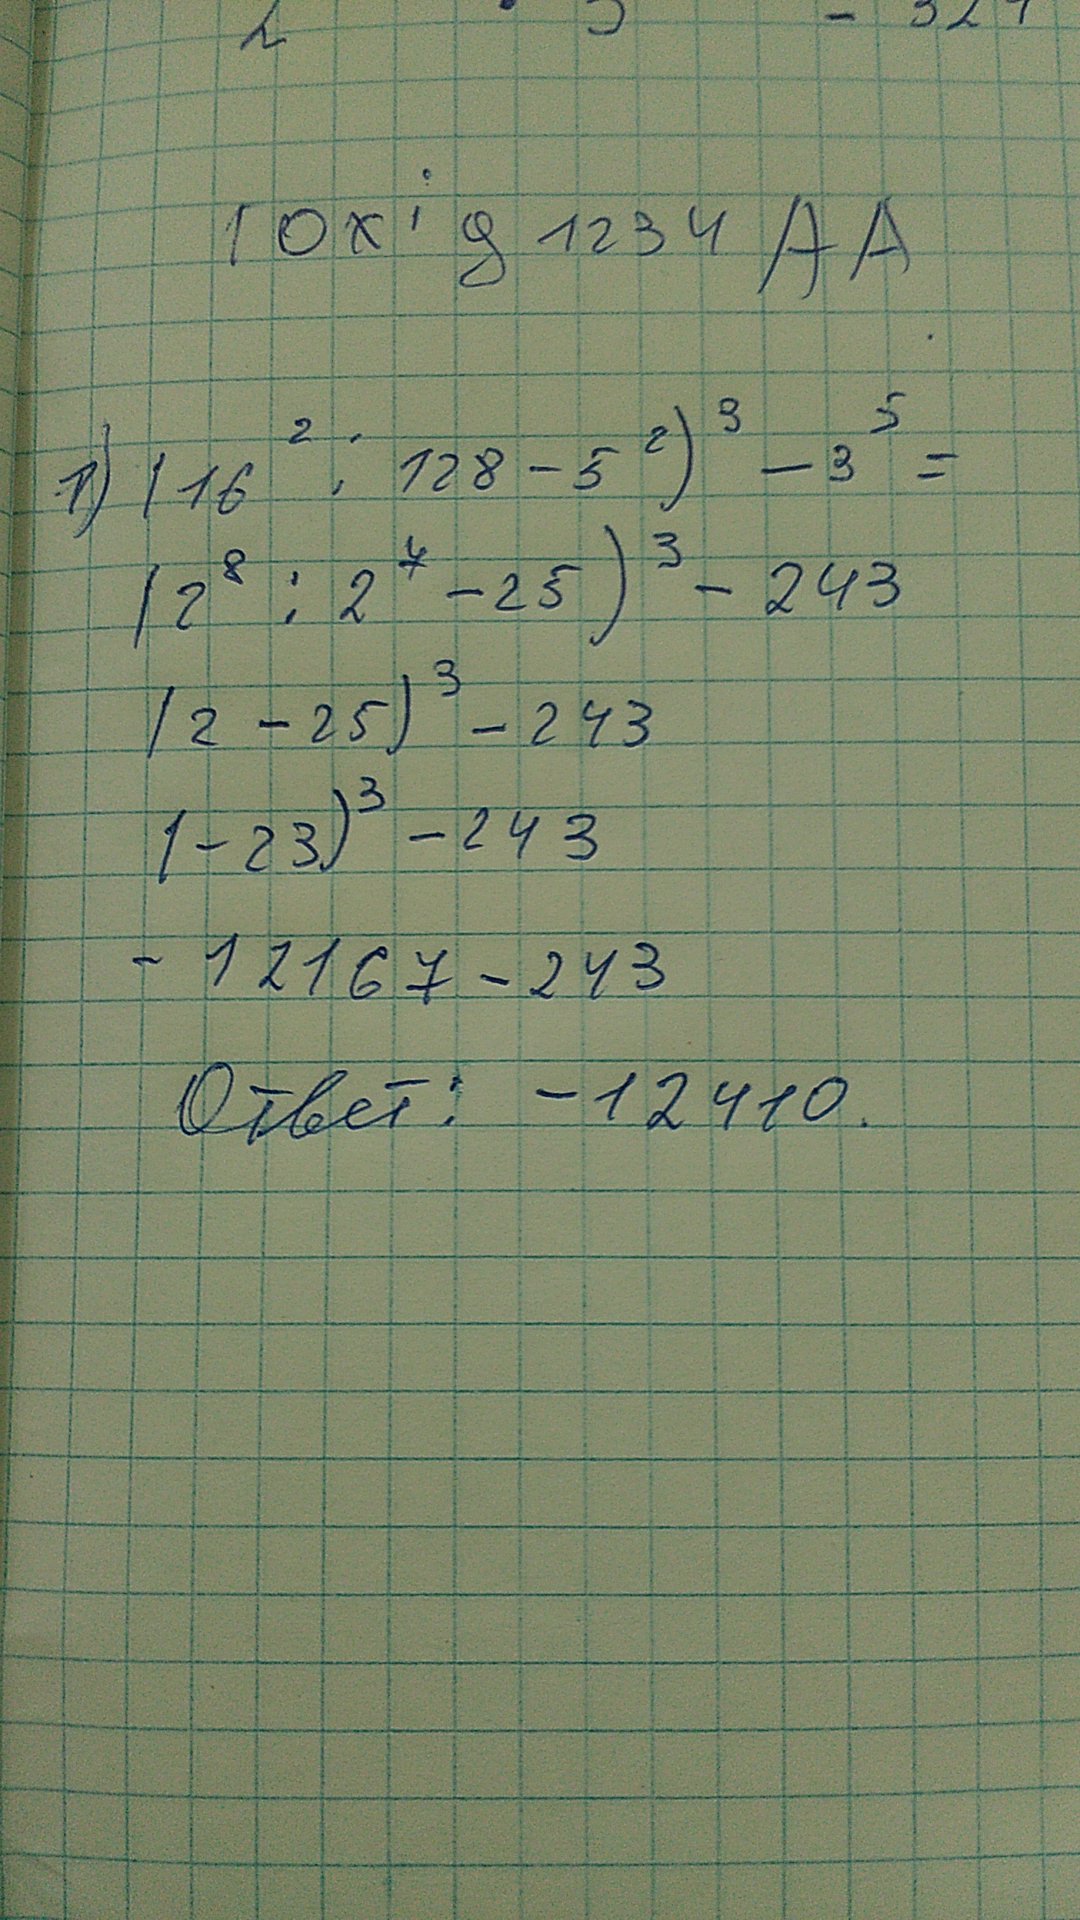 10xig1234AA
1) (16² : 128 - 5²)³ - 3⁵ =
(2⁸ : 2⁷ - 25)³ - 243
(2 - 25)³ - 243
(-23)³ - 243
- 12167 - 243
Ответ: -12410.